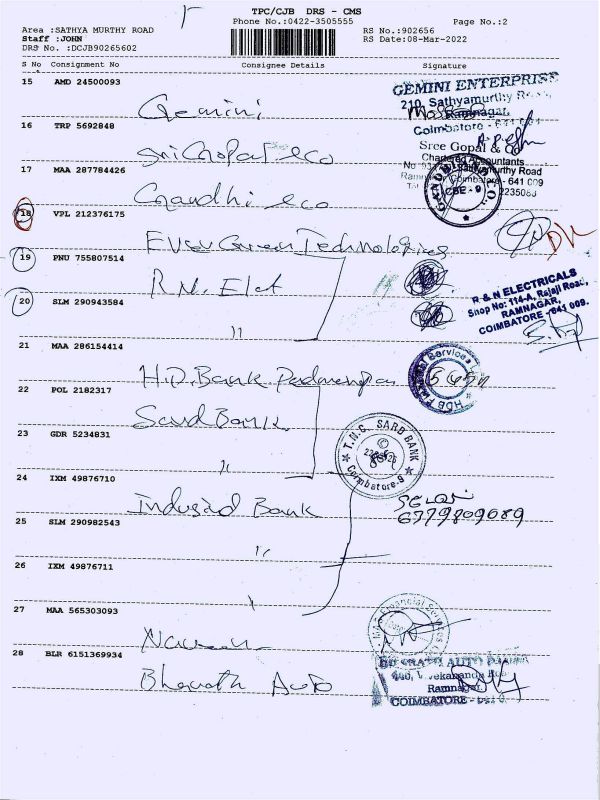 TPC/CJB DRS - CMS
Phone No.:0422-3505555 Page No.:2
Area :SATHYA MURTHY ROAD RS No.:902656
Staff :JOHN RS Date:08-Mar-2022
DRS No. :DCJB90265602
S No Consignment No Consignee Details Signature
15 AMD 24500093
Gemini
GEMINI ENTERPRISE
210, Sathyamurthy
Ramnagar,
Coimbatore - 641
16 TRP 5692848
Sri Gopal &co
Sree Gopal & Co
Chartered Accountants
Road
Coimbatore - 641 009
17 MAA 287784426
Gandhi &co
CBE - 9
18 VPL 212376175
Ever Green Technologies
19 PNU 755807514
R.N. Elct
20 SLM 290943584
"
R & N ELECTRICALS
Shop No: 114-A, Rajaji Road,
RAMNAGAR,
COIMBATORE - 641 009.
21 MAA 286154414
H.D. Bank
HDB Financial Services
22 POL 2182317
Sard Bank
23 GDR 5234831
"
T.N.C. SARD BANK
Coimbatore-9
24 IXM 49876710
Indusind Bank
25 SLM 290982543
"
26 IXM 49876711
27 MAA 565303093
Financial Services
28 BLR 6151369934
Bharath Auto
AUTO
Ramnagar
COIMBATORE